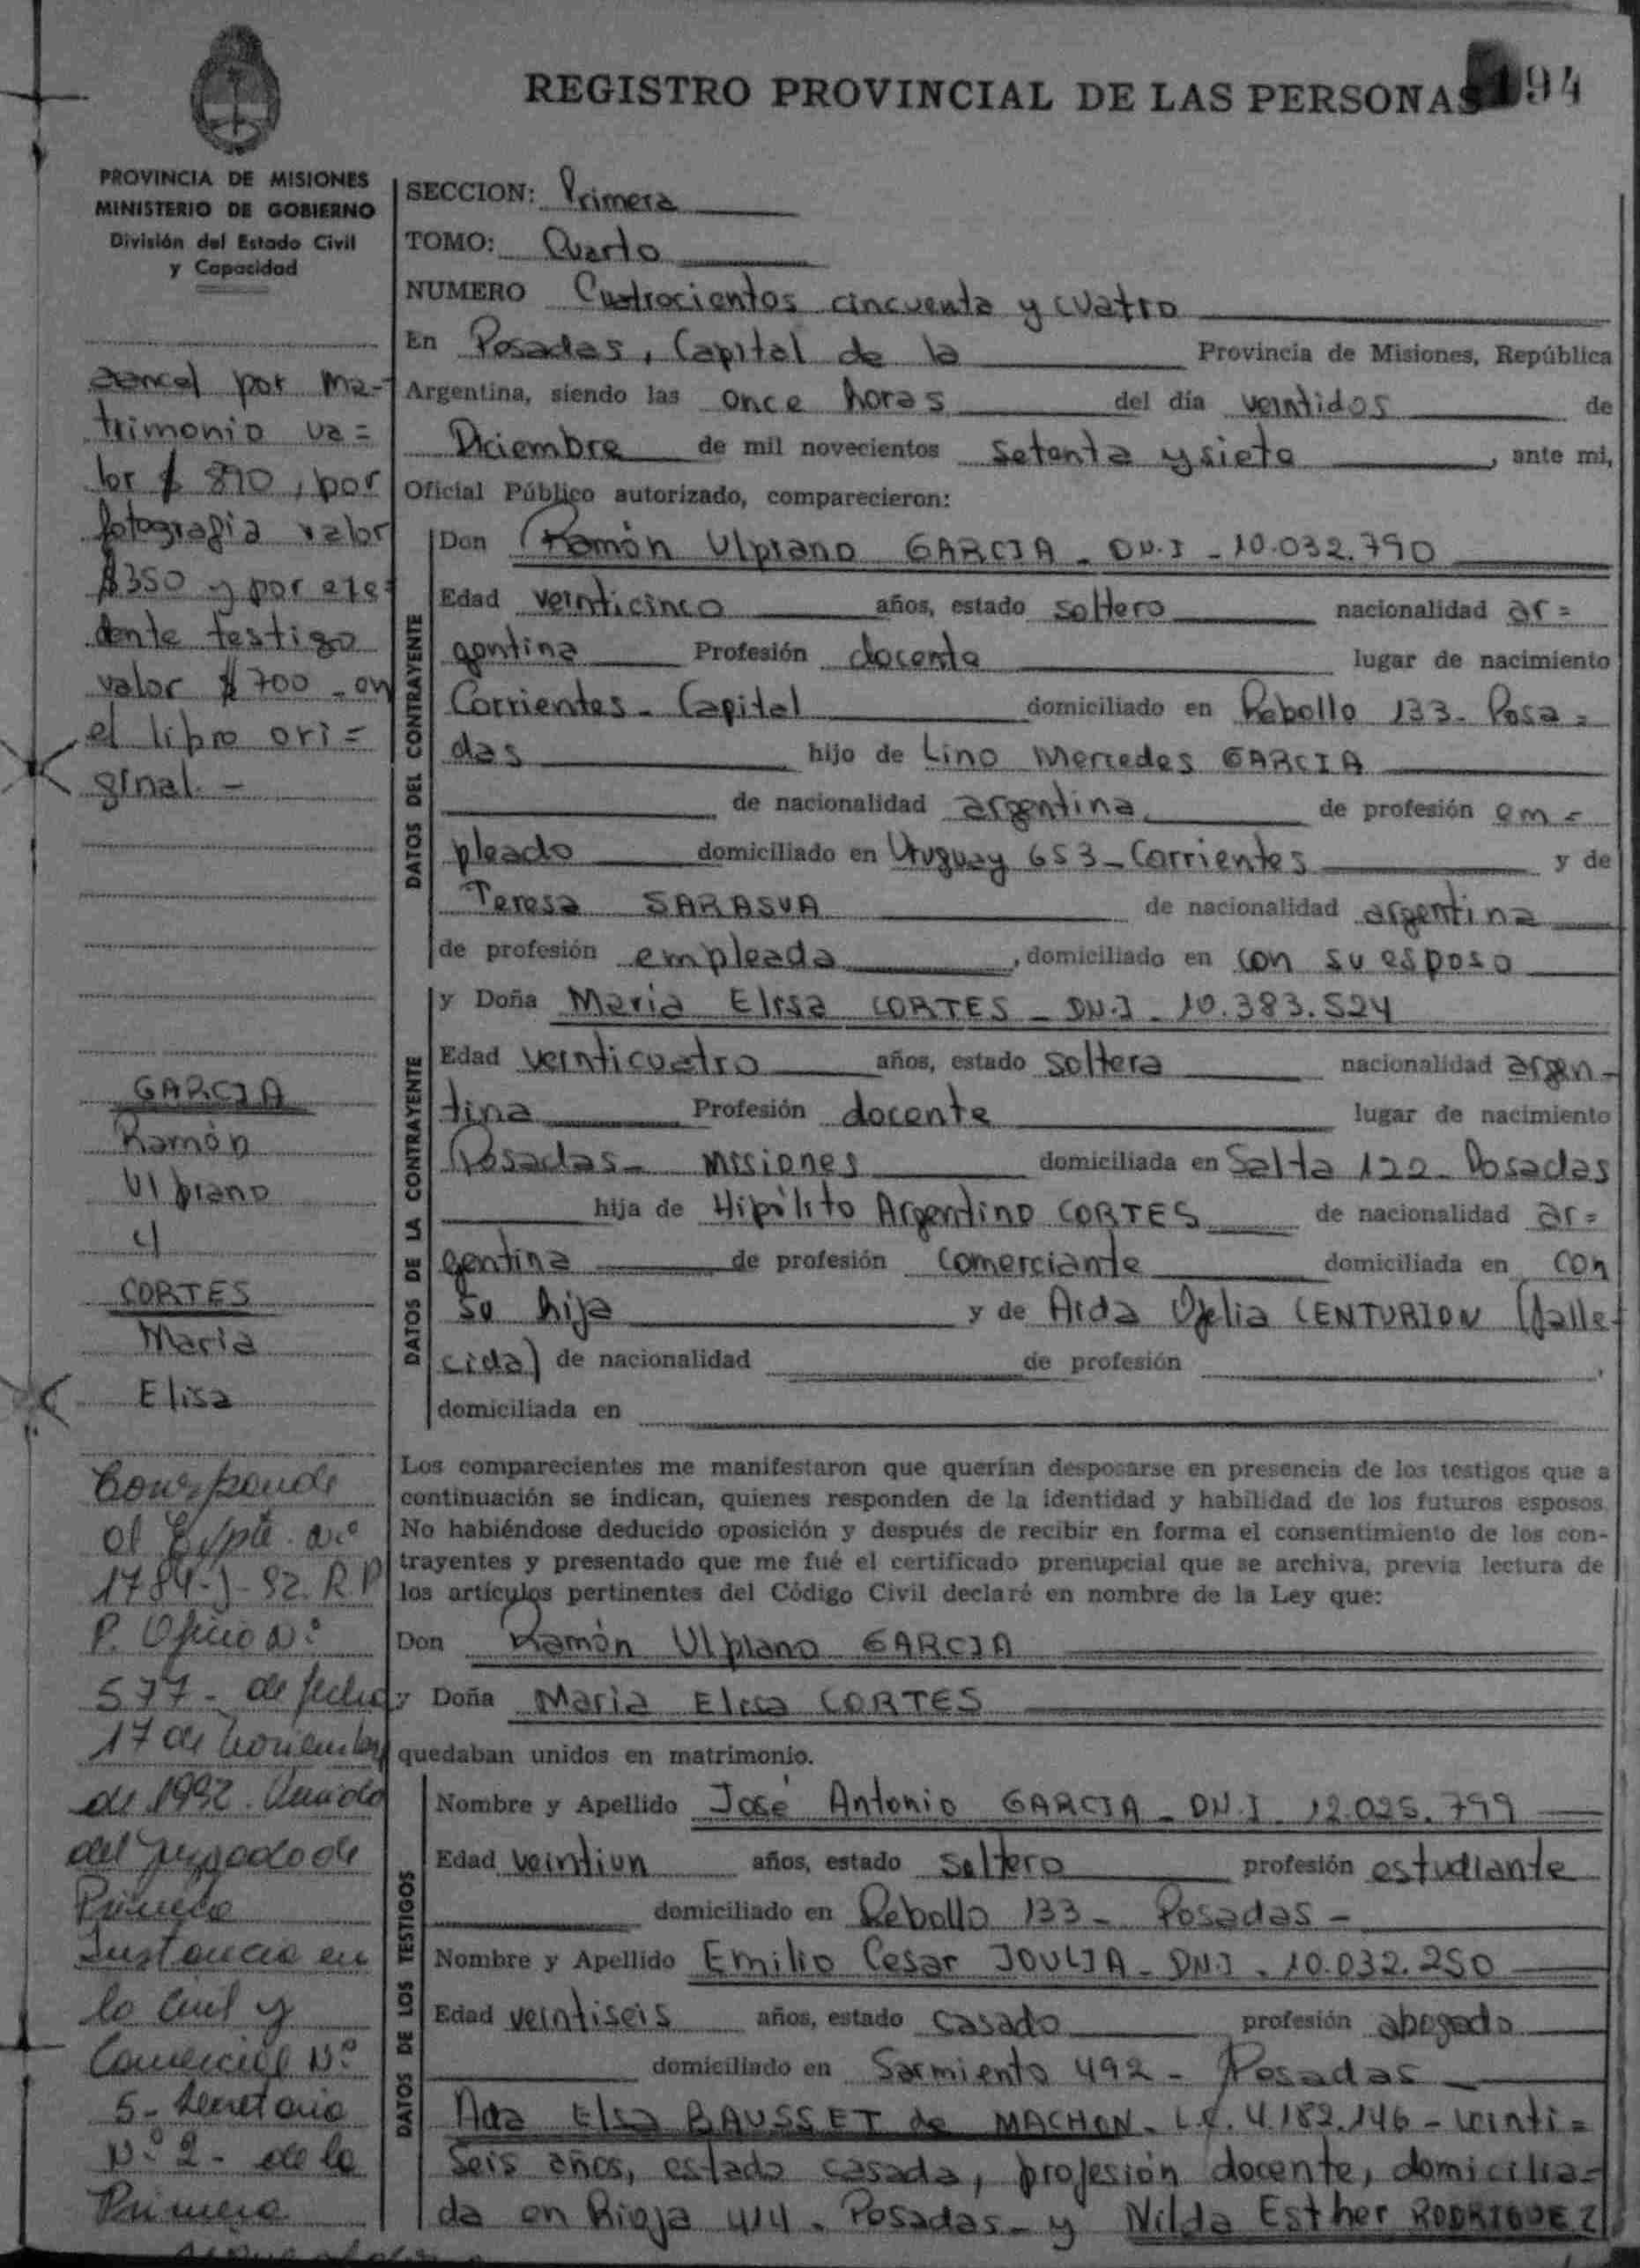 REGISTRO PROVINCIAL DE LAS PERSONAS 194
PROVINCIA DE MISIONES
MINISTERIO DE GOBIERNO
División del Estado Civil
y Capacidad
SECCION: Primera
TOMO: Cuarto
NUMERO Cuatrocientos cincuenta y cuatro
En Posadas, Capital de la Provincia de Misiones, República
Argentina, siendo las once horas del día veintidos de
Diciembre de mil novecientos setenta y siete, ante mi,
Oficial Público autorizado, comparecieron:
DATOS DEL CONTRAYENTE
Don Ramón Ulpiano GARCIA - DN.I - 10.032.790
Edad veinticinco años, estado soltero nacionalidad ar=
gentina Profesión docente lugar de nacimiento
Corrientes - Capital domiciliado en Rebollo 133 - Posa=
das hijo de Lino Mercedes GARCIA
de nacionalidad argentina de profesión em=
pleado domiciliado en Uruguay 653 - Corrientes y de
Teresa SARASUA de nacionalidad argentina
de profesión empleada, domiciliado en con su esposo
DATOS DE LA CONTRAYENTE
y Doña Maria Elisa CORTES - DN.I - 10.383.524
Edad veinticuatro años, estado soltera nacionalidad argen-
tina Profesión docente lugar de nacimiento
Posadas - Misiones domiciliada en Salta 122 - Posadas
hija de Hipólito Argentino CORTES de nacionalidad ar=
gentina de profesión comerciante domiciliada en con
su hija y de Aida Ofelia CENTURION (falle-
cida) de nacionalidad de profesión ,
domiciliada en
Los comparecientes me manifestaron que querían desposarse en presencia de los testigos que a
continuación se indican, quienes responden de la identidad y habilidad de los futuros esposos.
No habiéndose deducido oposición y después de recibir en forma el consentimiento de los con-
trayentes y presentado que me fué el certificado prenupcial que se archiva, previa lectura de
los artículos pertinentes del Código Civil declaré en nombre de la Ley que:
Don Ramón Ulpiano GARCIA
y Doña Maria Elisa CORTES
quedaban unidos en matrimonio.
DATOS DE LOS TESTIGOS
Nombre y Apellido José Antonio GARCIA - DN.I 12.025.799
Edad veintiun años, estado soltero profesión estudiante
domiciliado en Rebollo 133 - Posadas -
Nombre y Apellido Emilio Cesar JOULIA - DN.I - 10.032.250
Edad veintiseis años, estado casado profesión abogado
domiciliado en Sarmiento 492 - Posadas -
Ada Elsa BAUSSET de MACHON - L.C. 4.182.146 - veinti=
seis años, estado casada, profesión docente, domicilia=
da en Rioja 414 - Posadas - y Nilda Esther RODRIGUEZ
por ma-
trimonio va=
lor $ 890, por
fotografia valor
$350 y por exe=
dente testigo
valor $700 - en
el libro ori=
ginal. -
GARCIA
Ramón
Ulpiano
y
CORTES
Maria
Elisa
Corresponde
al Expte. N°
1784-J-92 R.P
P. Oficio N°
577 - de fecha
17 de noviembre
de 1992.
del Juzgado de
Primera
Instancia en
lo Civil y
Comercial N°
5 - Secretaria
N° 2 - de la
Primera